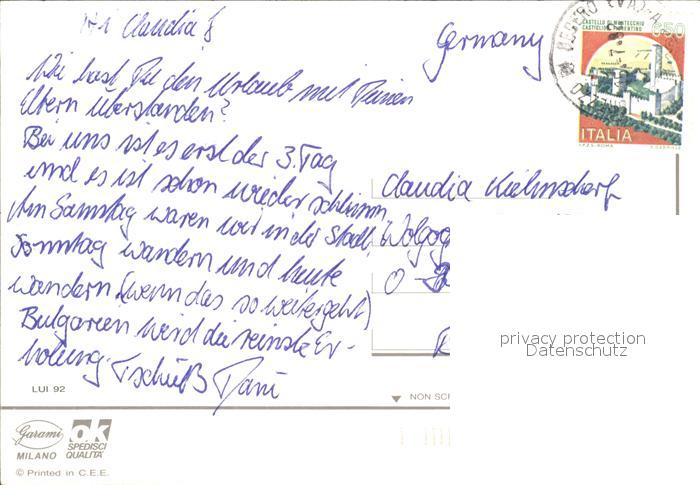 Hi Claudia!
Wie hast Du den Urlaub mit Deinen
Eltern überstanden?
Bei uns ist es erst der 3. Tag
und es ist schon wieder schlimm
Am Samstag waren wir in der Stadt,
Sonntag wandern und heute
wandern (wenn das so weitergeht)
Bulgarien wird die reinste Er-
holung. Tschüß Dani
Germany
Claudia
Wolgog
O -
CASTELLO DI MONTECCHIO
CASTIGLION FIORENTINO
650
ITALIA
I.P.Z.S. - ROMA
privacy protection
Datenschutz
LUI 92
NON SCR
Garami
MILANO
ok
SPEDISCI
QUALITÀ
© Printed in C.E.E.